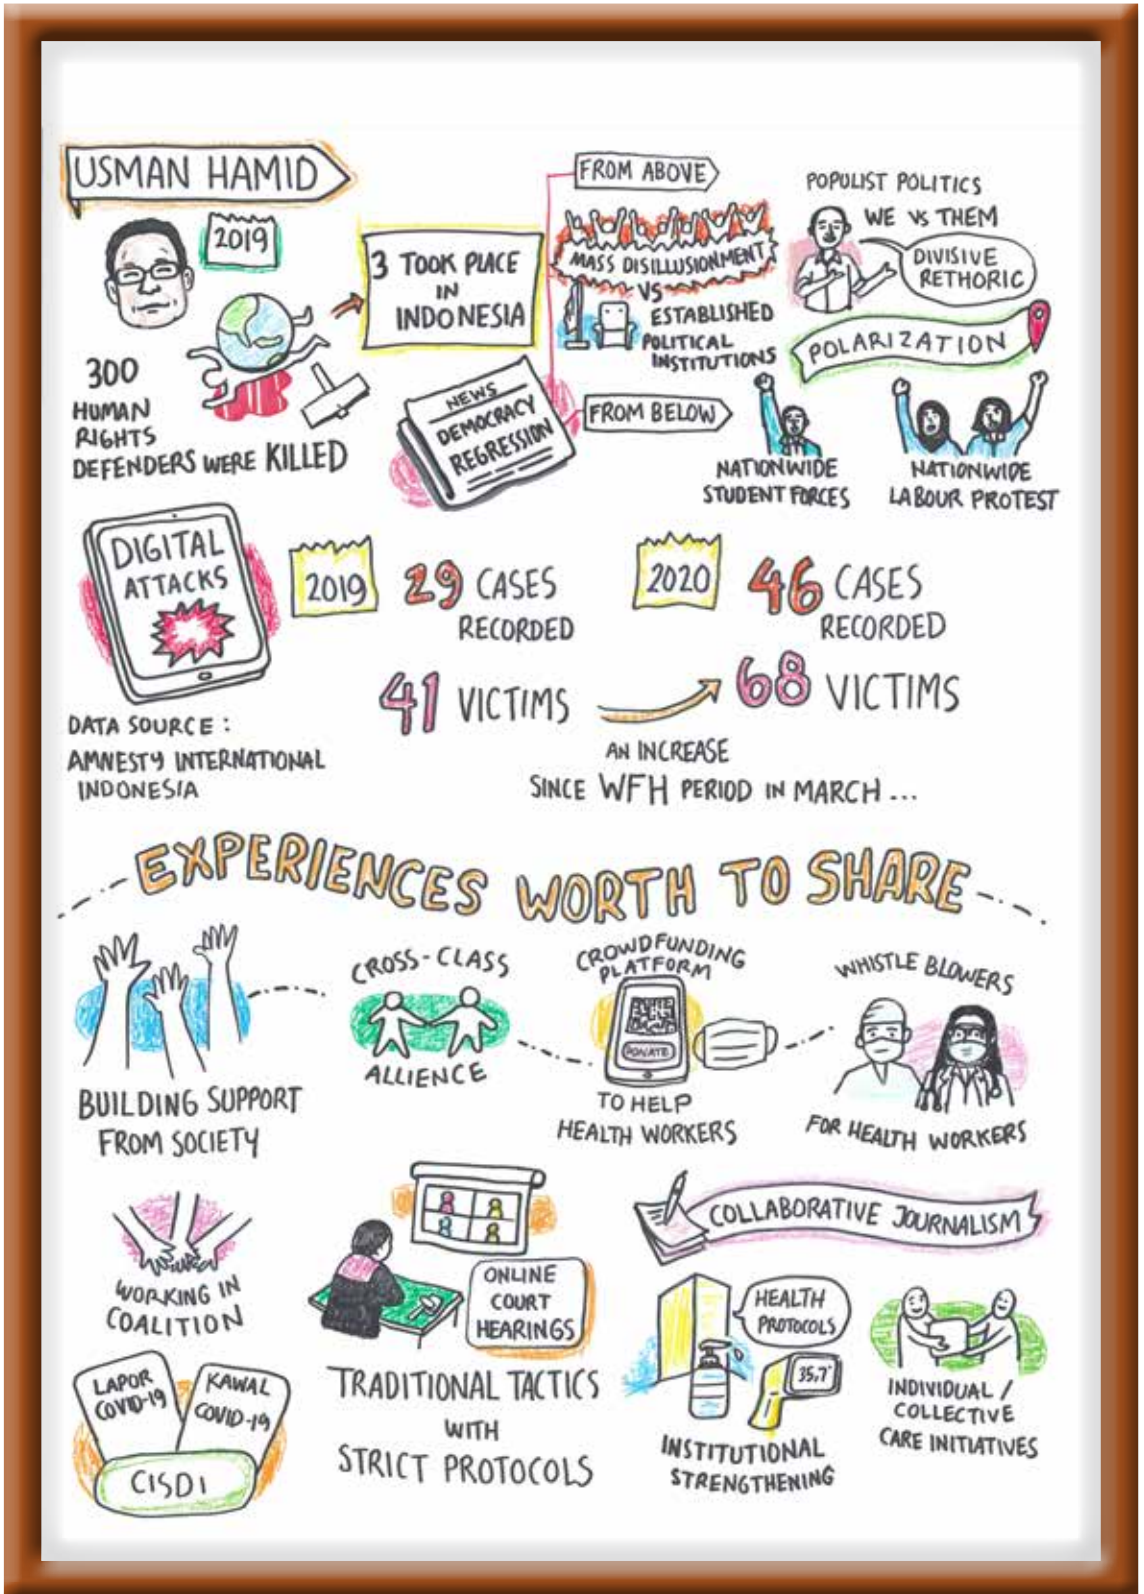 USMAN HAMID
2019
300
HUMAN
RIGHTS
DEFENDERS WERE KILLED
3 TOOK PLACE
IN
INDONESIA
NEWS
DEMOCRACY
REGRESSION
FROM ABOVE
MASS DISILLUSIONMENT
VS
ESTABLISHED
POLITICAL
INSTITUTIONS
POPULIST POLITICS
WE VS THEM
DIVISIVE
RETHORIC
POLARIZATION
FROM BELOW
NATIONWIDE
STUDENT FORCES
NATIONWIDE
LABOUR PROTEST
DIGITAL
ATTACKS
DATA SOURCE :
AMNESTY INTERNATIONAL
INDONESIA
2019
29 CASES
RECORDED
41 VICTIMS
2020
46 CASES
RECORDED
68 VICTIMS
AN INCREASE
SINCE WFH PERIOD IN MARCH ...
EXPERIENCES WORTH TO SHARE
BUILDING SUPPORT
FROM SOCIETY
CROSS-CLASS
ALLIENCE
CROWDFUNDING
PLATFORM
DONATE
TO HELP
HEALTH WORKERS
WHISTLE BLOWERS
FOR HEALTH WORKERS
WORKING IN
COALITION
LAPOR
COVID-19
KAWAL
COVID-19
CISDI
ONLINE
COURT
HEARINGS
TRADITIONAL TACTICS
WITH
STRICT PROTOCOLS
COLLABORATIVE JOURNALISM
HEALTH
PROTOCOLS
35,7°
INSTITUTIONAL
STRENGTHENING
INDIVIDUAL /
COLLECTIVE
CARE INITIATIVES